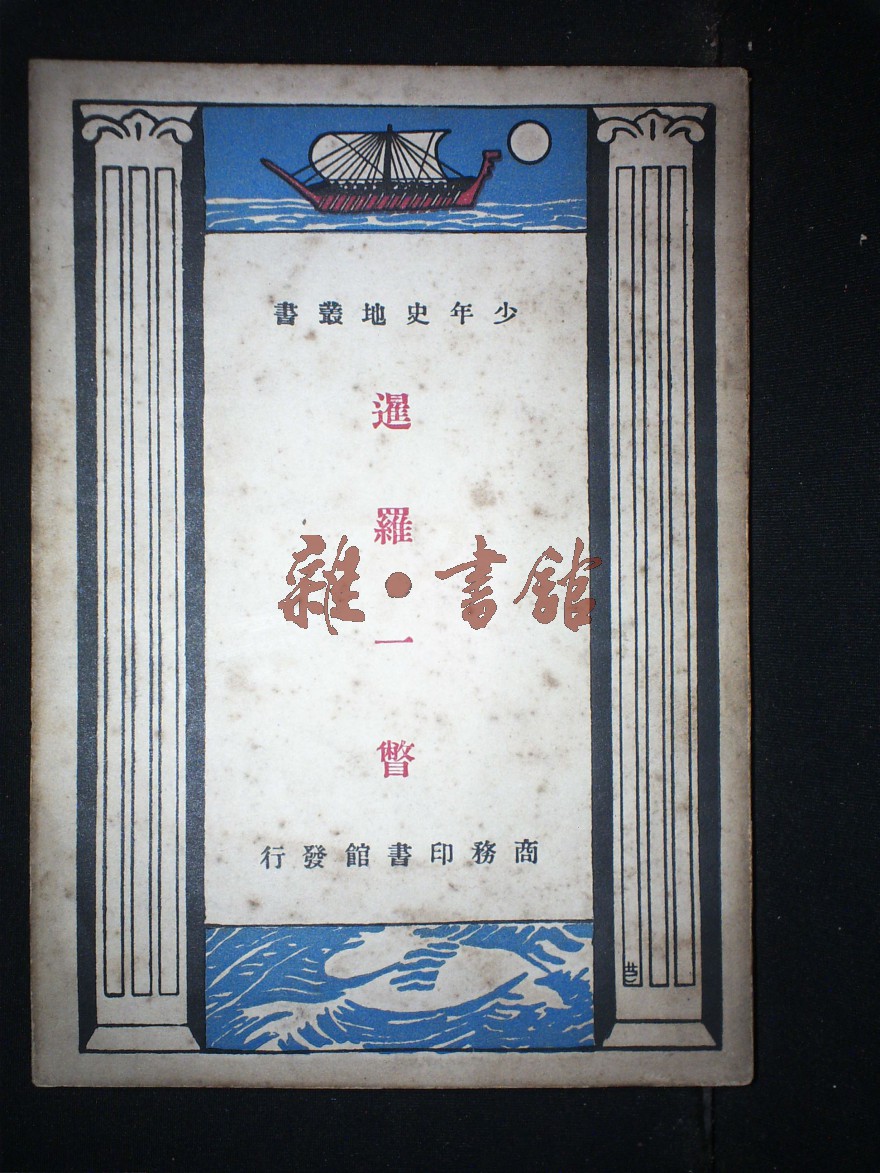 少年史地叢書
暹羅一瞥
雜·書館
商務印書館發行